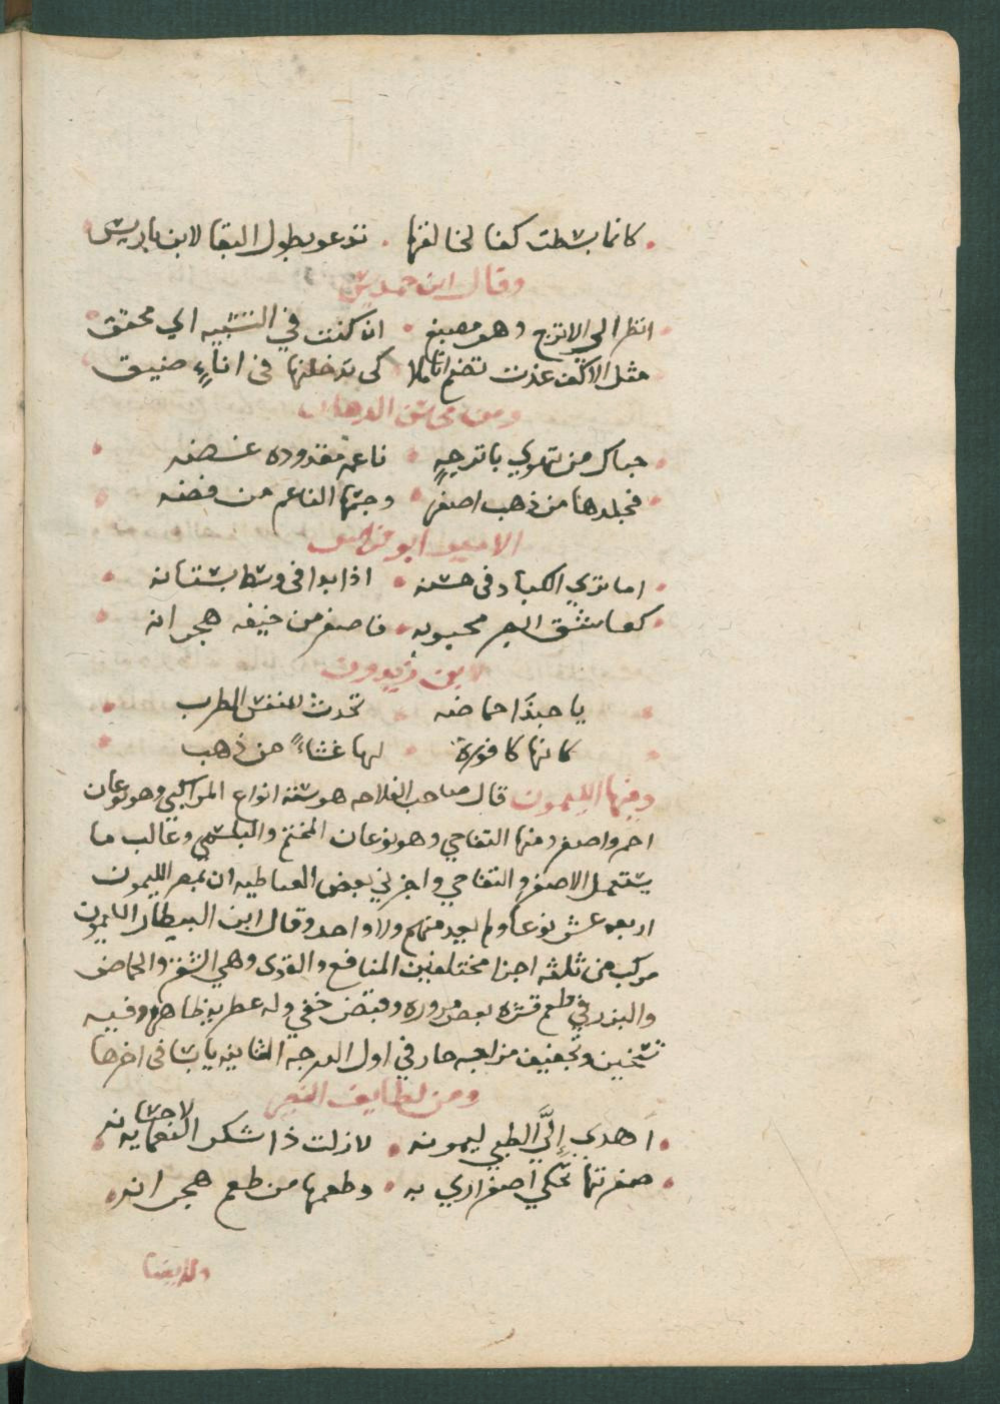 كانما بسطت كفا لخالقها تدعو بطول البقا لابن باديس
وقال ابن حمديس
انظر الى الاترج وهو مصبغ ان كنت في التشبيه اي محقق
مثل الاكف غدت تضم اناملا كى تدخلنها فى اناءٍ ضيق
ومن محاسن الدهان
حياك من تهوي باترجةٍ ناعمة مقدوده غضه
فجلدها من ذهب اصفر وجسمها الناعم من فضه
الامير ابو فراس
اما تري الكباد فى حسنه اذا بدا فى وسط بستانه
كعاشق ابصر محبوبه فاصفر من خيفه هجرانه
ابن زيدون
يا حبذا حماضه تحدث للنفس الطرب
كانها كافورة لها غشاءً من ذهب
ومنها الليمون قال صاحب الفلاحه هو سته انواع المراكبي وهو نوعان
احمر واصفر ومنها التفاحي وهو نوعان المختم والبلسمي وغالب ما
يستعمل الاصفر والتفاحي واخبرني بعض العياطيه ان بمصر الليمون
اربعه عشر نوعا ولم يعد منهم ولا واحد وقال ابن البيطار الليمون
مركب من ثلثه اجزا مختلفين المنافع والقوى وهي القشر والحماض
والبزر في طعم قشره بعض مروره وقبض خفي وله عطريه ظاهره وفيه
تسخين وتجفيف مزاجه حار في اول الدرجه الثانيه يابسا فى اخرها
ومن لطايف النصر
اهدي إليَّ الظبي ليمونه لازلت ذا شكر لاحسانه
صفرتها تحكي اصفراري به وطعمها من طعم هجرانه
وله ايضا